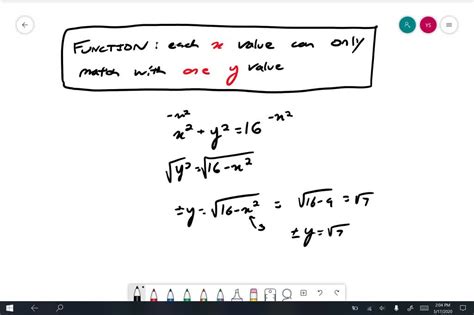 FUNCTION: each x value can only
match with one y value
-x² -x²
x² + y² = 16
√y² = √16-x²
±y = √16-x² = √16-9 = √7
3
±y = √7
YS
2:04 PM
5/17/2020